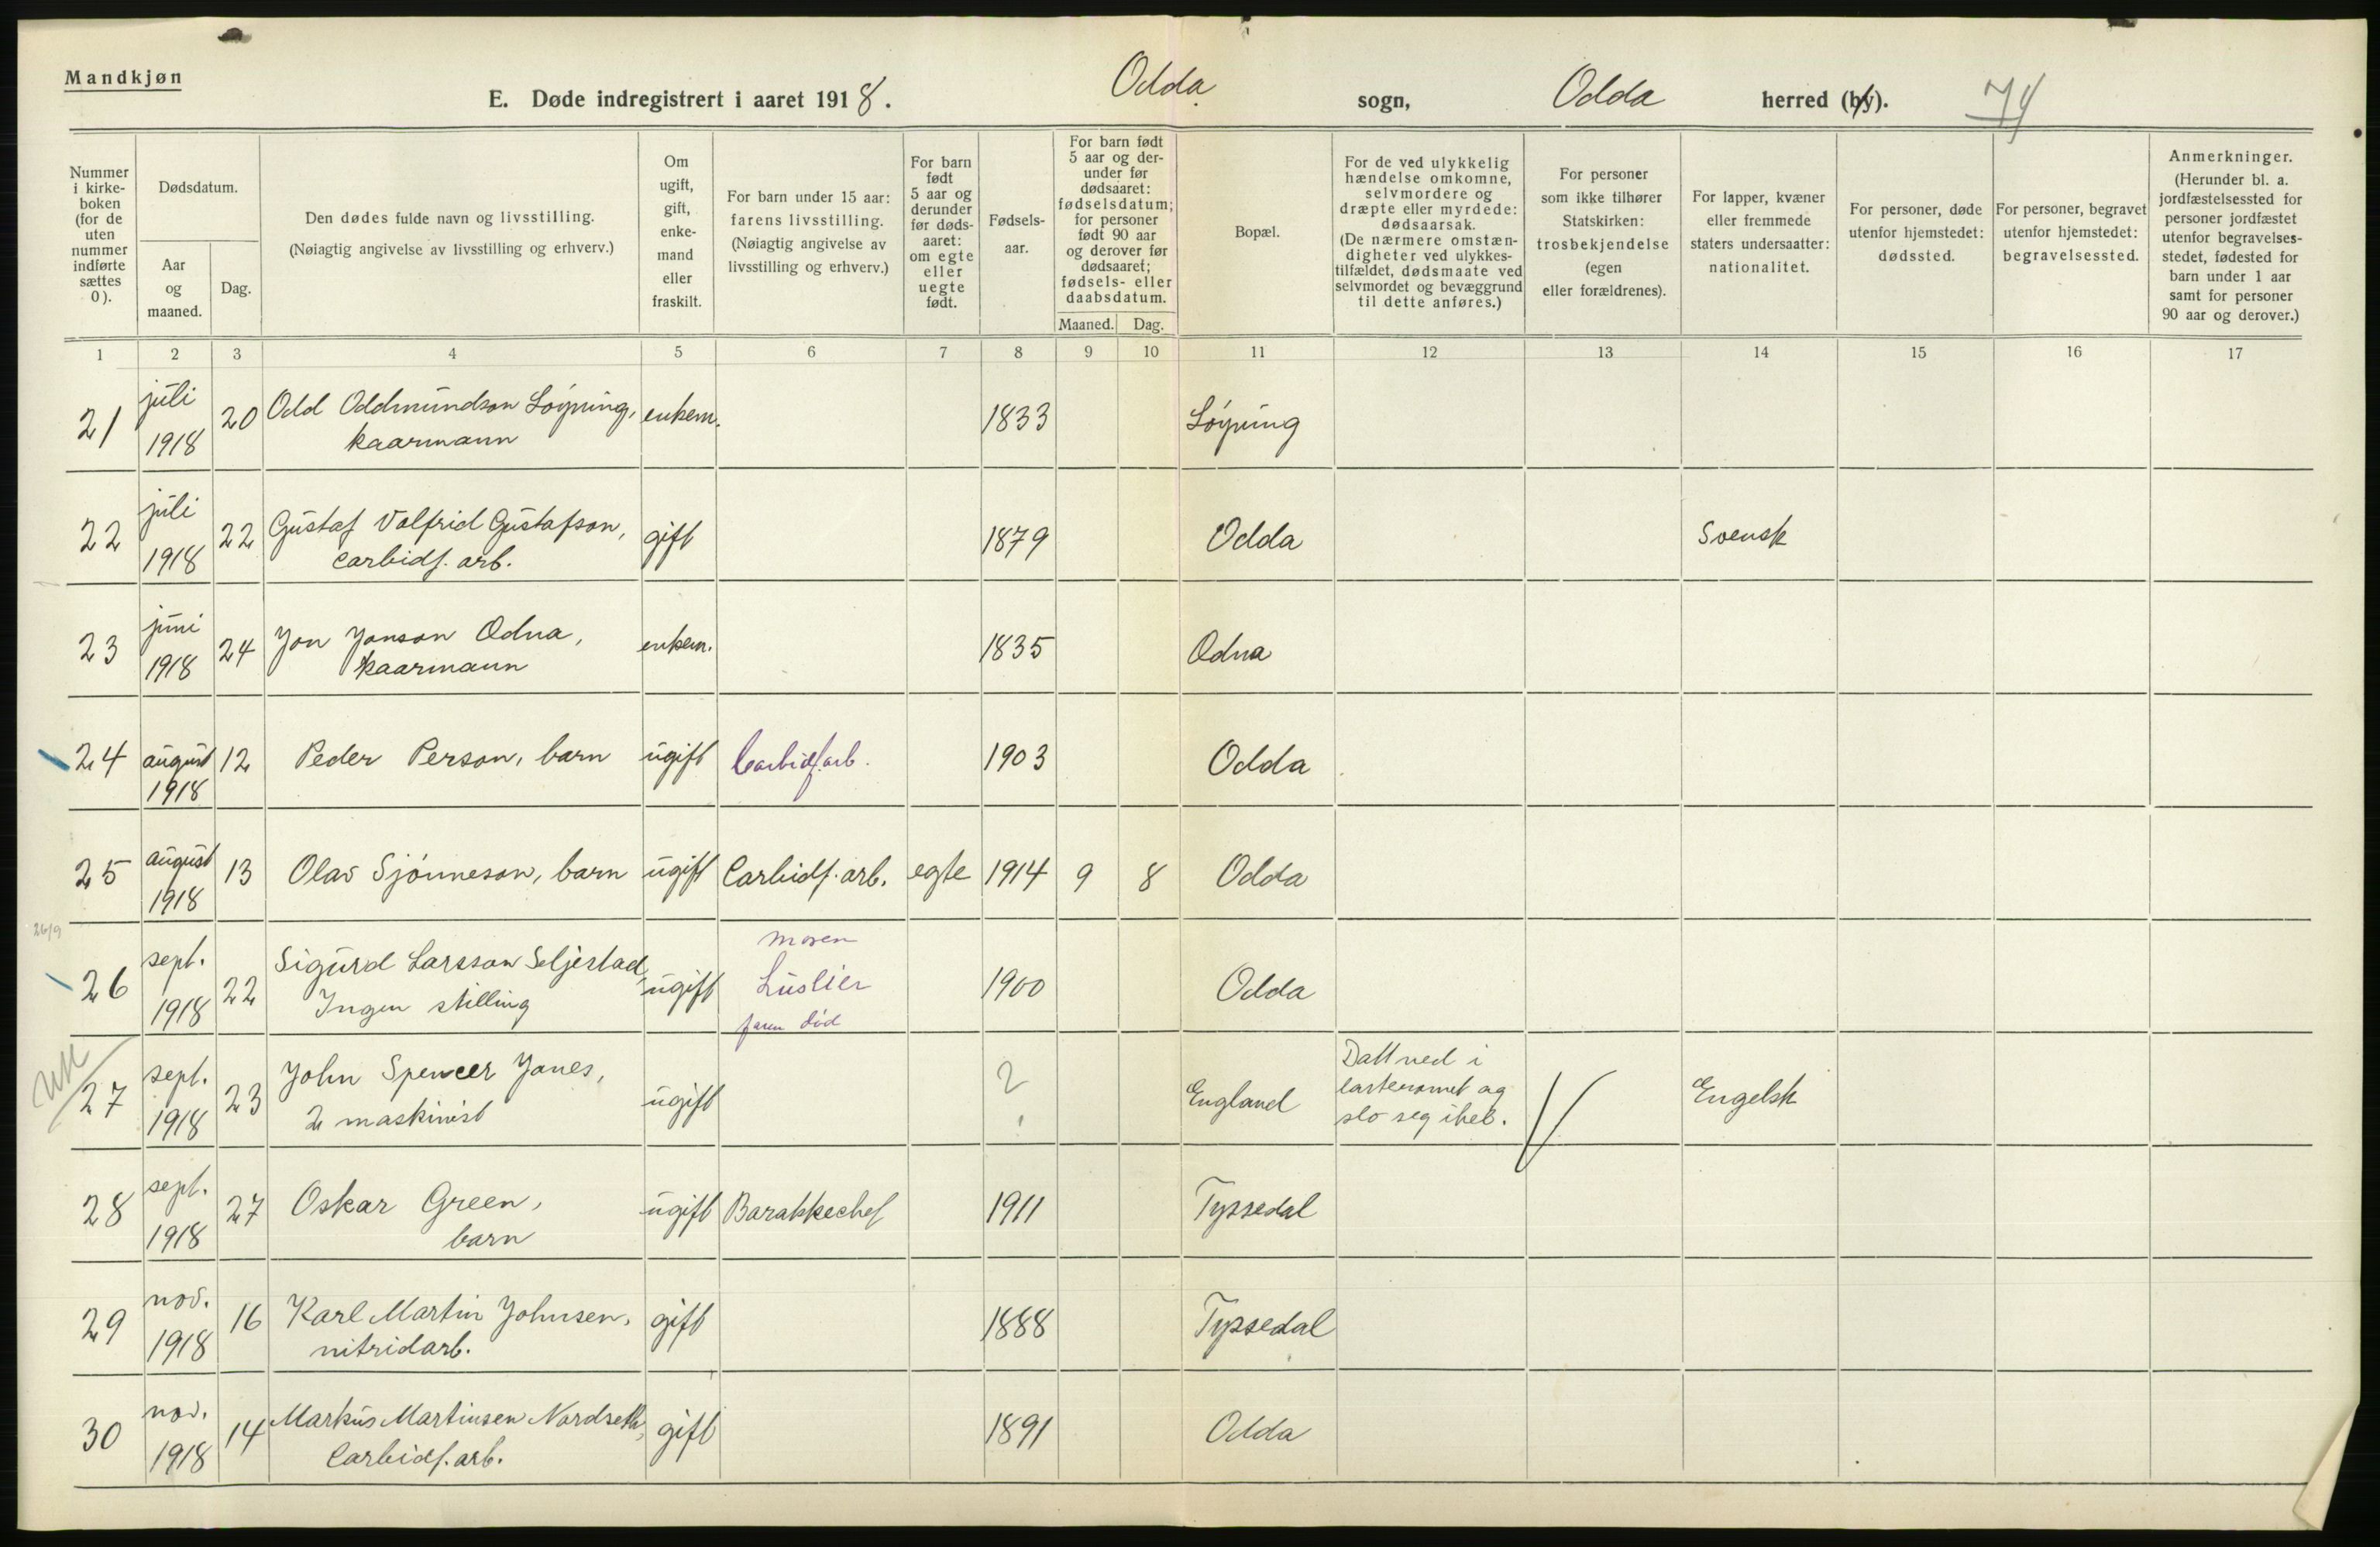 Mandkjøn
E. Døde indregistrert i aaret 1918. Odda sogn, Odda herred (by). 74
Nummer i kirkeboken (for de uten nummer indførte sættes 0).
Dødsdatum.
Aar og maaned.
Dag.
Den dødes fulde navn og livsstilling.
(Nøiagtig angivelse av livsstilling og erhverv.)
Om ugift, gift, enkemand eller fraskilt.
For barn under 15 aar: farens livsstilling. (Nøiagtig angivelse av livsstilling og erhverv.)
For barn født 5 aar og derunder før dødsaaret: om egte eller uegte født.
Fødselsaar.
For barn født 5 aar og derunder før dødsaaret: fødselsdatum; for personer født 90 aar og derover før dødsaaret; fødsels- eller daabsdatum.
Maaned. Dag.
Bopæl.
For de ved ulykkelig hændelse omkomne, selvmordere og dræpte eller myrdede: dødsaarsak. (De nærmere omstændigheter ved ulykkestilfældet, dødsmaate ved selvmordet og bevæggrund til dette anføres.)
For personer som ikke tilhører Statskirken: trosbekjendelse (egen eller forældrenes).
For lapper, kvæner eller fremmede staters undersaatter: nationalitet.
For personer, døde utenfor hjemstedet: dødssted.
For personer, begravet utenfor hjemstedet: begravelsessted.
Anmerkninger. (Herunder bl. a. jordfæstelsessted for personer jordfæstet utenfor begravelsesstedet, fødested for barn under 1 aar samt for personer 90 aar og derover.)
1 2 3 4 5 6 7 8 9 10 11 12 13 14 15 16 17
21 juli 1918 20 Odd Oddmundson Løyning, kaarmann enkem. 1833 Løyning
22 juli 1918 22 Gustaf Valfrid Gustafson, carbidf. arb. gift 1879 Odda Svensk
23 juni 1918 24 Jon Jonson Odna, kaarmann enkem. 1835 Odna
24 august 1918 12 Peder Person, barn ugift Carbidf.arb. 1903 Odda
25 august 1918 13 Olav Sjønneson, barn ugift Carbidf. arb. egte 1914 9 8 Odda
26/9
26 sept. 1918 22 Sigurd Larsson Seljestad, Ingen stilling ugift moren faren død 1900 Odda
27 sept. 1918 23 John Spencer Jones, 2 maskinist ugift ? England Datt ned i lasteromet og slo seg ihel. Engelsk
28 sept. 1918 27 Oskar Green, barn ugift Barakkechef 1911 Tyssedal
29 nov. 1918 16 Karl Martin Johnsen, nitridarb. gift 1888 Tyssedal
30 nov. 1918 14 Markus Martinsen Nordseth, Carbidf. arb. gift 1891 Odda